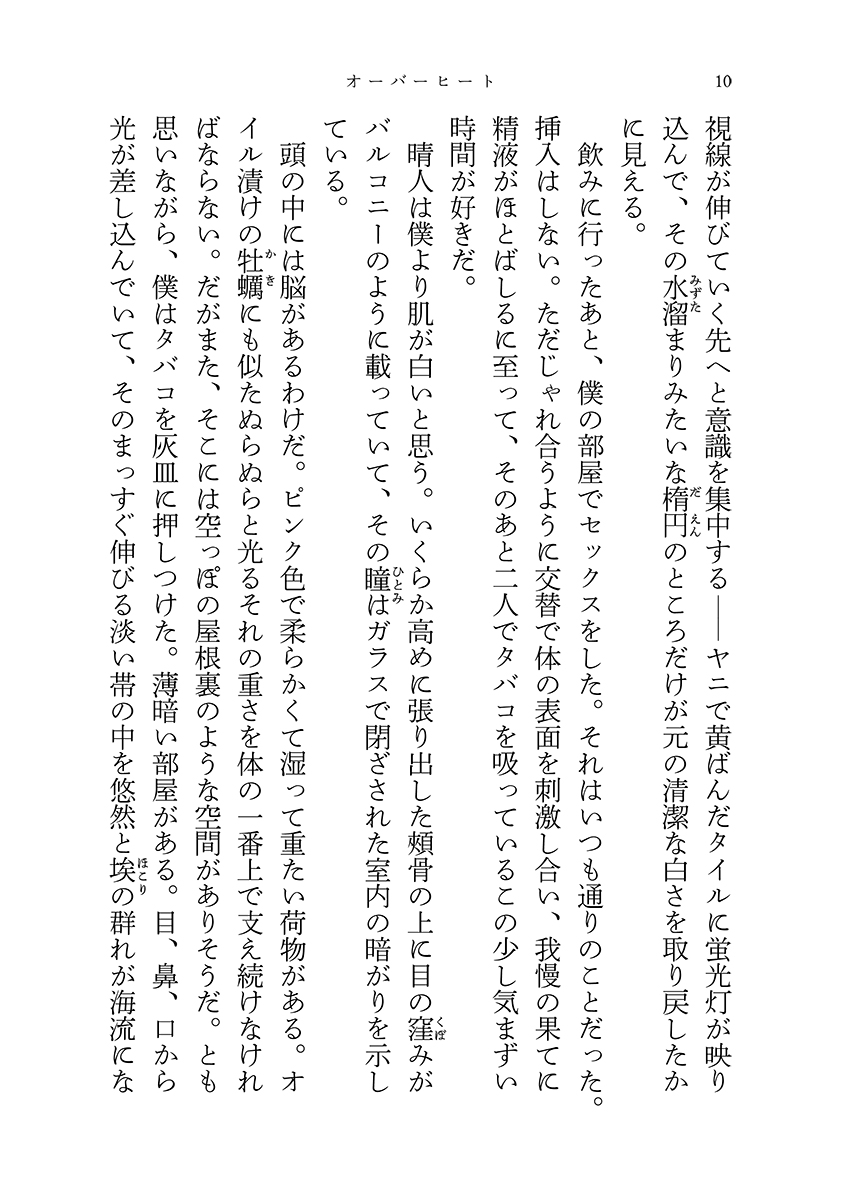 10
オーバーヒート
視線が伸びていく先へと意識を集中する――ヤニで黄ばんだタイルに蛍光灯が映り
込んで、その水溜まりみたいな楕円のところだけが元の清潔な白さを取り戻したか
に見える。
飲みに行ったあと、僕の部屋でセックスをした。それはいつも通りのことだった。
挿入はしない。ただじゃれ合うように交替で体の表面を刺激し合い、我慢の果てに
精液がほとばしるに至って、そのあと二人でタバコを吸っているこの少し気まずい
時間が好きだ。
晴人は僕より肌が白いと思う。いくらか高めに張り出した頰骨の上に目の窪みが
バルコニーのように載っていて、その瞳はガラスで閉ざされた室内の暗がりを示し
ている。
頭の中には脳があるわけだ。ピンク色で柔らかくて湿って重たい荷物がある。オ
イル漬けの牡蠣にも似たぬらぬらと光るそれの重さを体の一番上で支え続けなけれ
ばならない。だがまた、そこには空っぽの屋根裏のような空間がありそうだ。とも
思いながら、僕はタバコを灰皿に押しつけた。薄暗い部屋がある。目、鼻、口から
光が差し込んでいて、そのまっすぐ伸びる淡い帯の中を悠然と埃の群れが海流にな